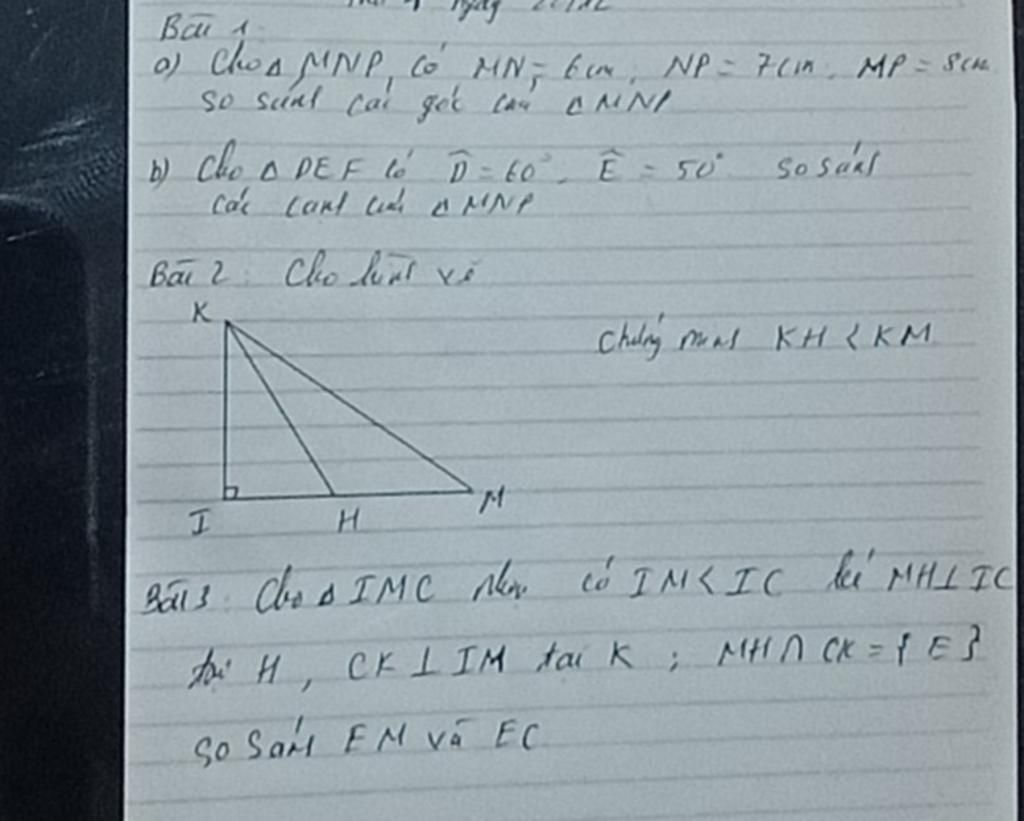 Bài 1
a) Cho Δ MNP, có MN = 6cm, NP = 7cm, MP = 8cm
so sánh các góc của Δ MNP
b) Cho Δ DEF có D̂ = 60°. Ê = 50° so sánh
các cạnh của Δ MNP
Bài 2: Cho hình vẽ
K
Chứng minh KH < KM
I H M
Bài 3: Cho Δ IMC nhọn có IM < IC kẻ MH ⊥ IC
tại H, CK ⊥ IM tại K; MH ∩ CK = { E }
so sánh EM và EC